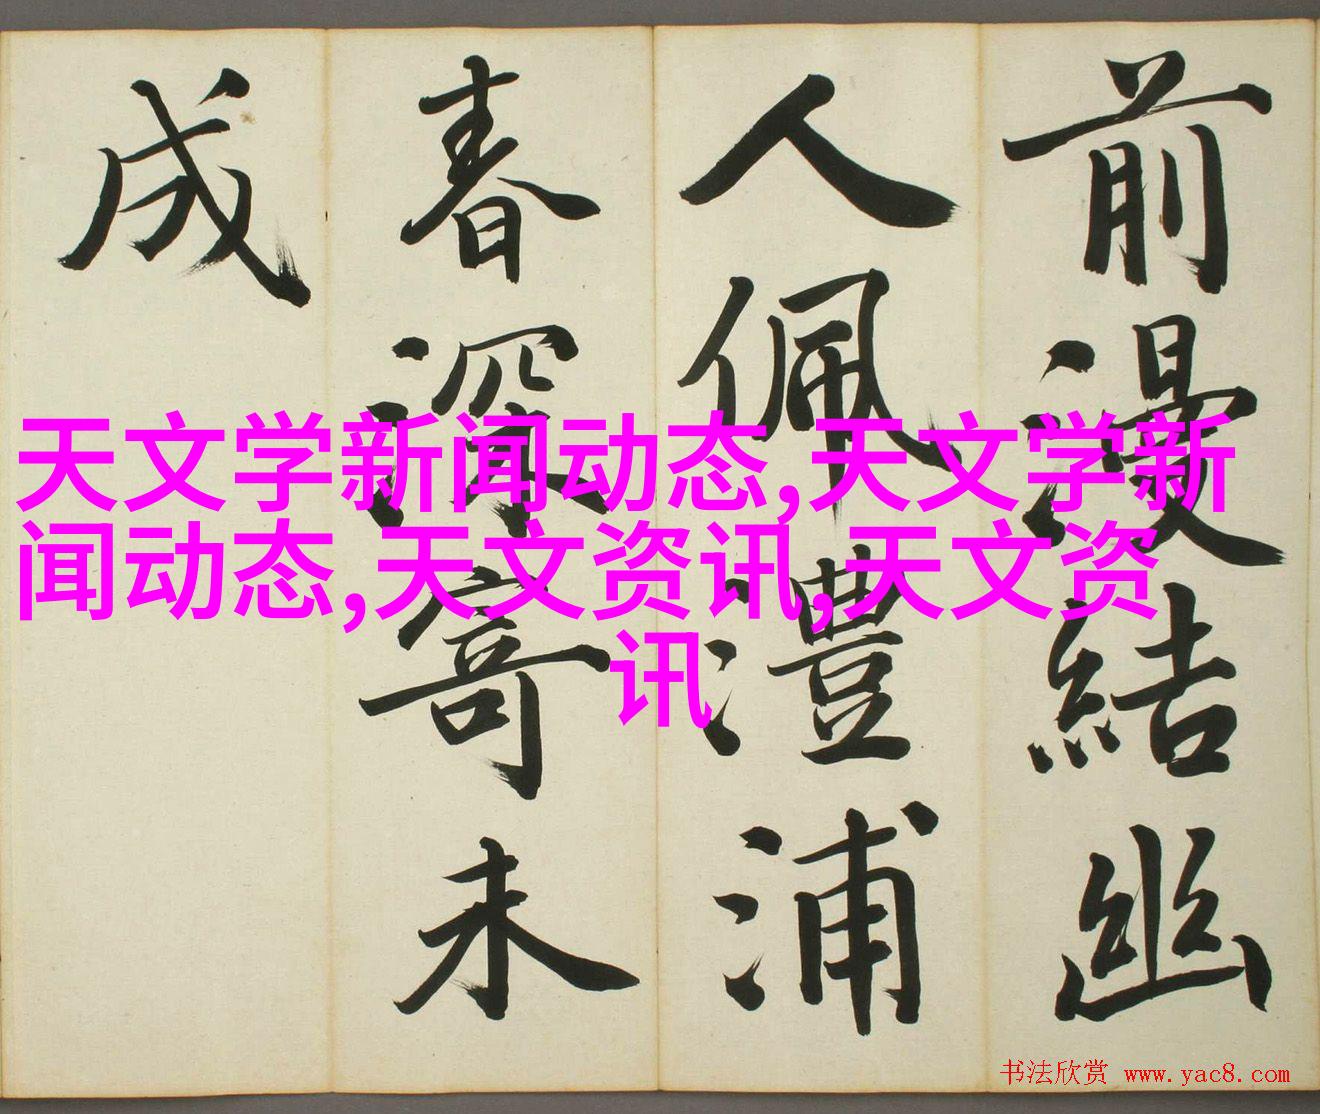 前漫結幽
人佩澧浦
春深寄未
成
天文学新闻动态,天文学新
闻动态,天文资讯,天文资
讯
书法欣赏 www.yac8.com